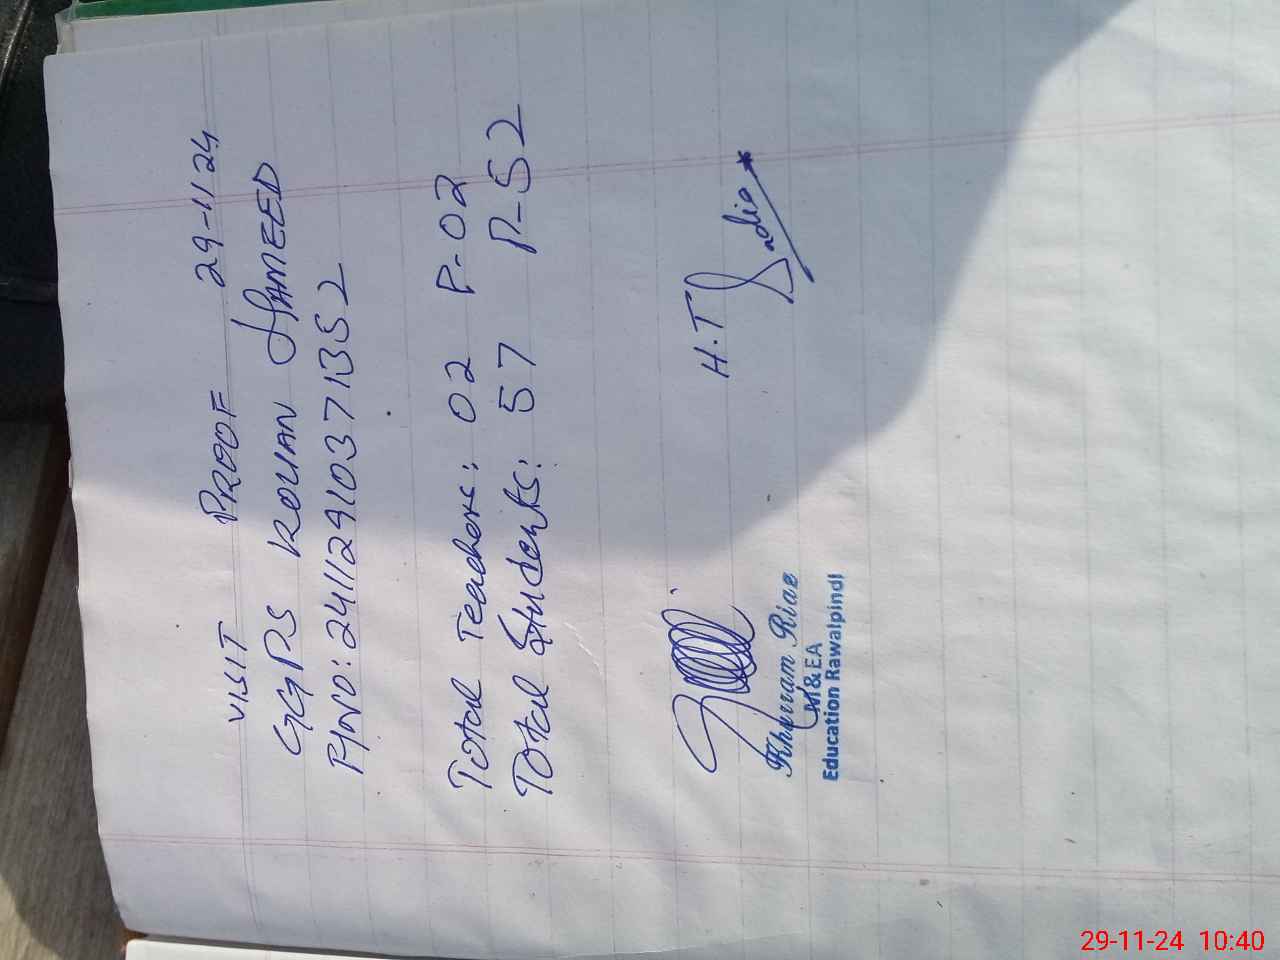 VISIT PROOF 29-11-24
GGPS KOLIAN HAMEED
P/NO: 24112910371352
Total Teachers: 02 P-02
Total Students: 57 P-52
H.T
Sadia
Khurram Riaz
M&EA
Education Rawalpindi
29-11-24 10:40